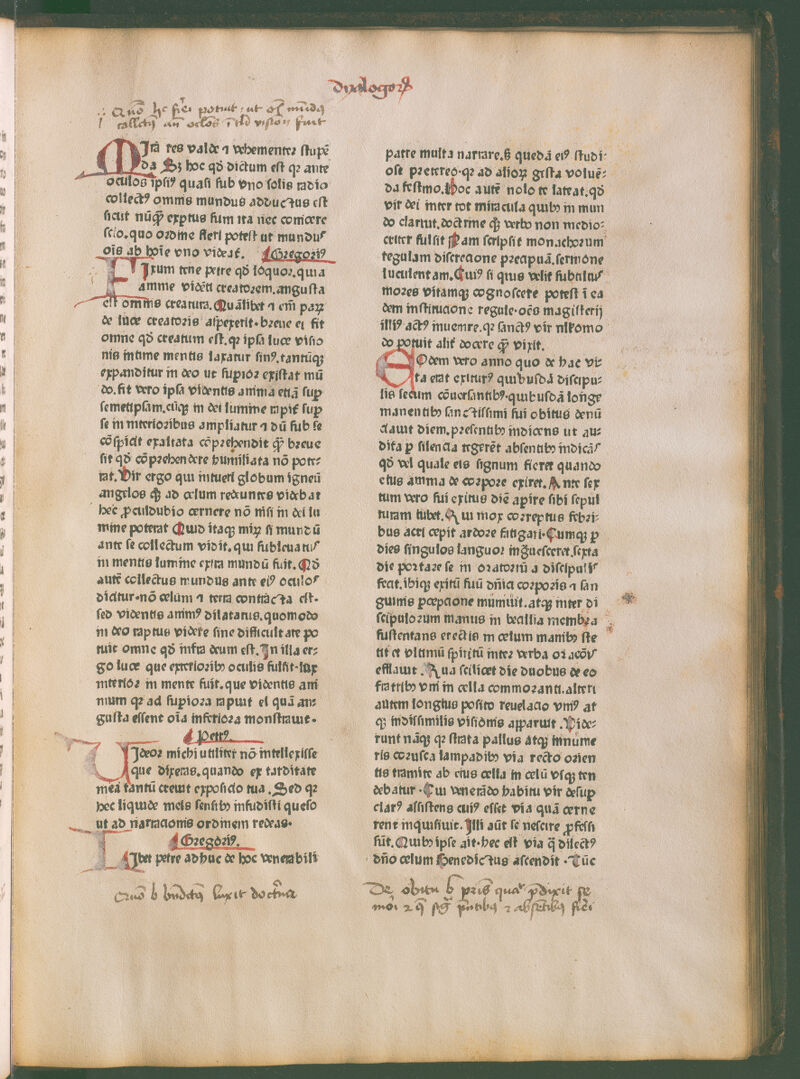 Dyalogorꝝ
Quō hͨ fieri potuit · ut oīs mūdꝰ
collectꝰ an̄ ocl̓os
MIra res valde ⁊ vehementer stupē
da Sꝫ hoc qḋ dictum est qꝛ ante
oculos ipsiꝰ quasi sub vno solis radio
collectꝰ omnis mundus adductus est
sicut nūq̄ exptus sum ita nec conicere
scio. quo ordine fieri potest ut mundus
oīs ab hoīe vno videat᷑. Gregoriꝰ
FIxum tene petre qḋ loquor. quia
amme vidēti creatorem. angusta
est omnis creatura. Quālibet ⁊ em̄ paꝝ
de luce creatoris aspexerit. breue ei fit
omne qḋ creatum est. qꝛ ipsa luce visio
nis intime mentis laxatur sinꝰ. tantūqꝫ
expanditur in deo ut supior existat mū
do. fit vero ipsa videntis anima etiā sup
semetipsam. cūqꝫ in dei lumine rapit᷑ sup
se in interioribus ampliatur ⁊ dū sub se
cōspicit exaltata cōprehendit q̄ breue
sit qḋ cōprehendere humiliata nō pote-
rat. Vir ergo qui intueri globum igneū
angelos qꝫ ad celum redeuntes videbat
hec ꝓculdubio cernere nō nisi in dei lu
mine poterat Quid itaqꝫ miꝝ si mundū
ante se collectum vidit. qui subleuatus
in mentis lumine extra mundū fuit. Qḋ
autē collectus mundus ante eiꝰ oculos
dicitur. nō celum ⁊ terra contracta est.
sed videntis animꝰ dilatatus. quomodo
in deo raptus videre sine difficultate po
tuit omne qḋ infra deum est. In illa er-
go luce que exterioribꝫ oculis fulsit. lux
interior in mente fuit. que videntis ani
mum qꝛ ad supiora rapuit ei quā an-
gusta essent oīa inferiora monstrauit.
Petrꝰ
VIdeor michi utiliter nō intellexisse
que dixeras. quando ex tarditate
mea tantū creuit exposicio tua. Sed qꝛ
hec liquide meis sensibꝫ infudisti queso
ut ad narracionis ordinem redeas.
Gregoriꝰ.
LIbet petre adhuc de hoc venerabili
Quō b bn̄dictꝰ luxit doctrina
patre multa narrare. sꝫ quedā eiꝰ studi-
ose pretereo. qꝛ ad alioꝝ gesta voluē-
da festino. Hoc autē nolo te lateat. qḋ
vir dei inter tot miracula quibꝫ in mun
do claruit. doctrine qꝫ verbo non medio-
criter fulsit Nam scripsit monachorum
regulam discretione precipuā. sermone
luculentam. Cuiꝰ si quis velit subtilius
mores vitamqꝫ cognoscere potest ī ea
dem institucione regule. oēs magisterij
illiꝰ actꝰ inuenire. qꝛ sanctꝰ vir nllomo
do potuit alit᷑ docere q̄ vixit.
EOdem vero anno quo de hac vi-
ta erat exiturꝰ quibusdā discipu-
lis secum cōuersantibꝰ. quibusdā longe
manentibꝫ sanctissimi sui obitus denū
ciauit diem. presentibꝫ indicens ut au-
dita p silencia tegerēt absentibꝫ indicās
qḋ vel quale eis signum fieret quando
eius anima de corpore exiret. Ante sex
tum vero sui exitus diē apire sibi sepul
turam iubet. Qui mox correptus febri-
bus acri cepit ardore fatigari. Cumqꝫ p
dies singulos languor ingrauesceret. sexta
die portare se in oratoriū a discipulis
fecit. ibiqꝫ exitū suū dn̄ica corporis ⁊ san
guinis pcepcione muniuit. atqꝫ inter di
scipulorum manus in becillia membra
sustentans erectis in celum manibꝫ ste
tit et vltimū spiritū inter verba oracōis
efflauit. Qua scilicet die duobus de eo
fratribꝫ vni in cella commoranti. alteri
autem longius posito reuelacio vniꝰ at
qꝫ indissimilis visionis apparuit. Vide-
runt nāqꝫ qꝛ strata pallus atqꝫ innume
ris corusca lampadibꝫ via recto orien
tis tramite ab eius cella in celū vsqꝫ ten
debatur. Cui venerādo habitu vir desup
clarꝰ assistens cuiꝰ esset via quā cerne
rent inquisiuit. Illi aūt se nescire ꝓfessi
sūt. Quibꝫ ipse ait. hec est via q̄ dilectꝰ
dn̄o celum Benedictus ascendit. Tūc
De obitu b pris̄ quaꝉ p̄dixit se
mori ⁊ p̄ntibus ⁊ absētibus fieri